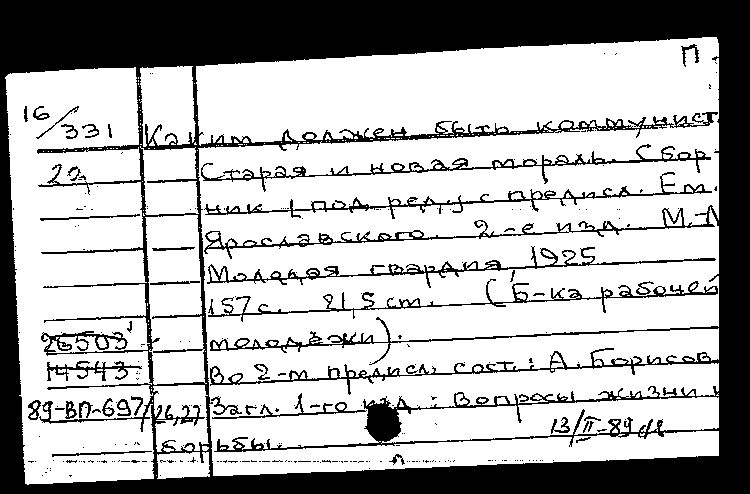 П.
16/331 Каким должен быть коммунист.
Старая и новая мораль. Сбор-
ник / под ред. и с предисл. Ем.
Ярославского. 2-е изд. М.-Л
Молодая гвардия, 1925
157 с. 21,5 см. (Б-ка рабочей
26503 молодёжи).
14543 Во 2-м предисл. сост.: А. Борисов
89-ВП-697/26,27 Загл. 1-го изд.: Вопросы жизни и
борьбы. 13/II-89